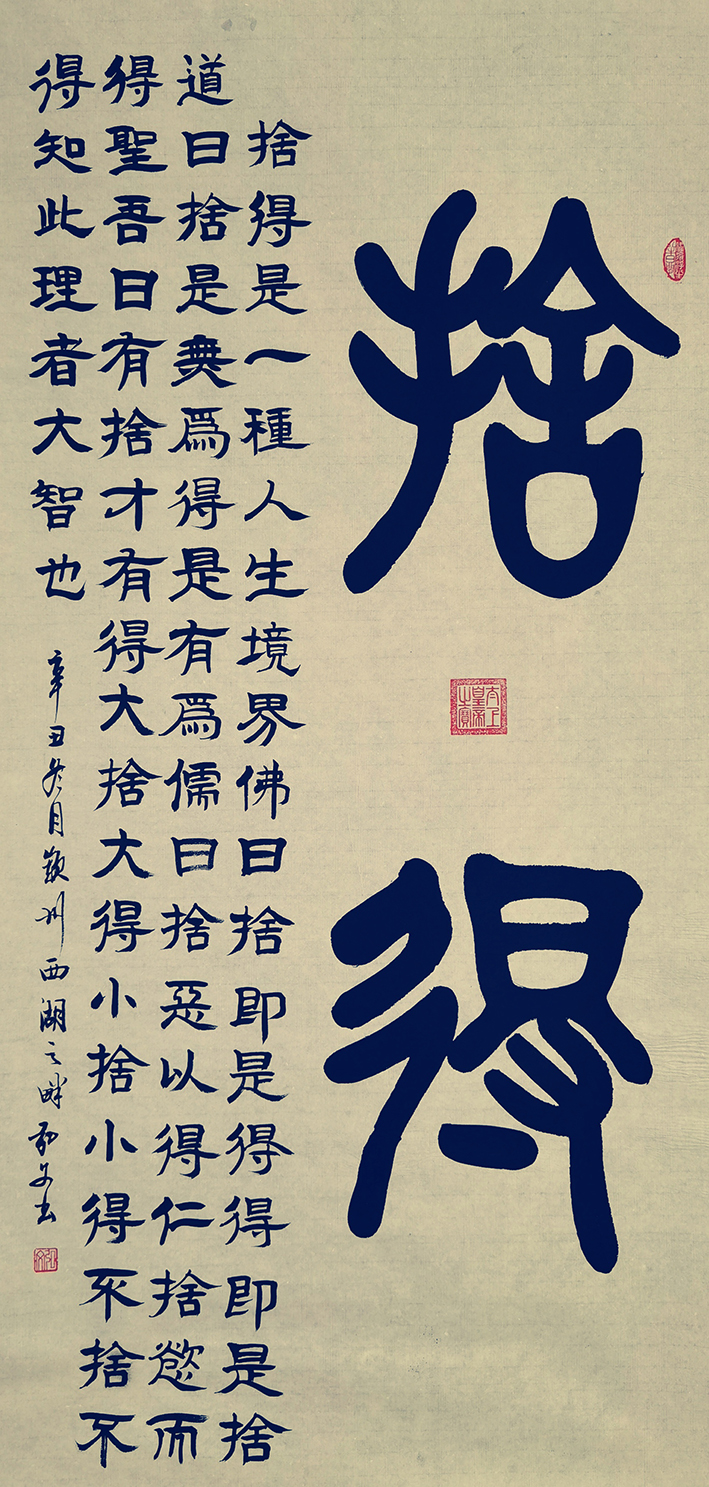 捨得
捨得是一種人生境界佛曰捨即是得得即是捨
道曰捨是無爲得是有爲儒曰捨惡以得仁捨慾而
得聖吾曰有捨才有得大捨大得小捨小得不捨不
得知此理者大智也
辛丑冬月潁州西湖之畔文书
太上皇帝之寶